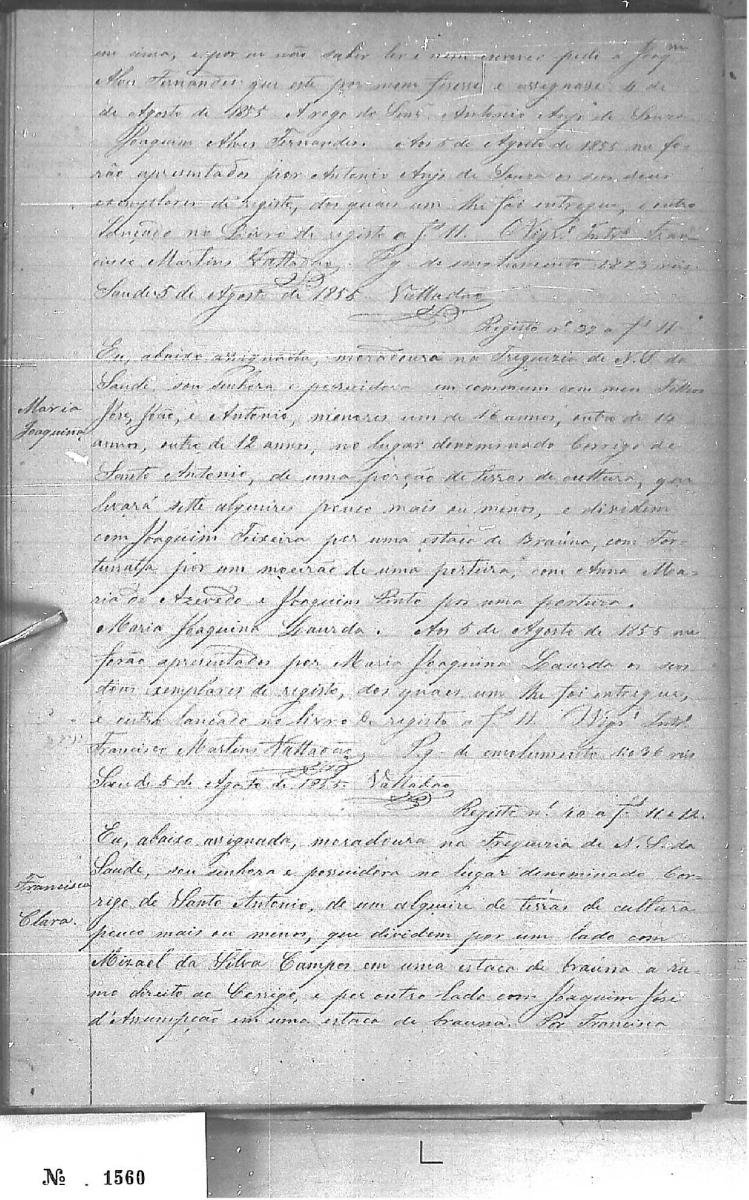 em cima, e por eu não saber ler e nem escrever pedi a Joaqm
Alves Fernandes que este por mim fizesse e assignasse 4 de
de Agosto de 1855 A rogo do Senr Antonio Anjo de Souza
Joaquim Alves Fernandes. Aos 5 de Agosto de 1855 me fo-
rão apresentados por Antonio Anjo de Souza os seus dous
exemplares de registo, dos quaes um lhe foi entregue, e outro
lançado no Livro de registo a fs 11. O Vigrº Intrº Fran-
cisco Martins Valladão. Pg. de emolumento 1273 reis
Saude 5 de Agosto de 1855. Valladão
Registo nº 39 a fs 11
Eu, abaixo assignada, moradoura na Freguezia de N. S. da
Saude, sou senhora e possuidora em commum com meus Filhos
José, João, e Antonio, menores um de 16 annos, outro de 14
annos, outro de 12 annos, no lugar denominado Corrigo de
Santo Antonio, de uma porção de terras de cultura, que
levará sette alqueires pouco mais ou menos, e dividem
com Joaquim Teixeira por uma estaca de Braúna, com For-
tunata por um moirão de uma porteira, com Anna Ma-
ria de Azevedo e Joaquim Pinto por uma porteira.
Maria Joaquina Laurda. Aos 5 de Agosto de 1855 me
forão apresentados por Maria Joaquina Laurda os seus
dous exemplares de registo, dos quaes um lhe foi entregue,
e outro lançado no livro de registo a fs 11. Vigrº Intrº
Francisco Martins Valladão. Pg. de emolumento 1036 reis
Saude 5 de Agosto de 1855. Valladão
Registo nº 40 a fs 11 e 12.
Eu, abaixo assignada, moradoura na Freguezia de N. S. da
Saude, sou senhora e possuidora no lugar denominado Cor-
rigo de Santo Antonio, de um alqueire de terras de cultura
pouco mais ou menos, que dividem por um lado com
Mizael da Silva Campos em uma estaca de braúna a ru-
mo direito do Corrigo, e por outro lado com Joaquim José
d'Assumpção em uma estaca de brauna. Por Francisca
Maria
Joaquina
Francisca
Clara.
Nº . 1560